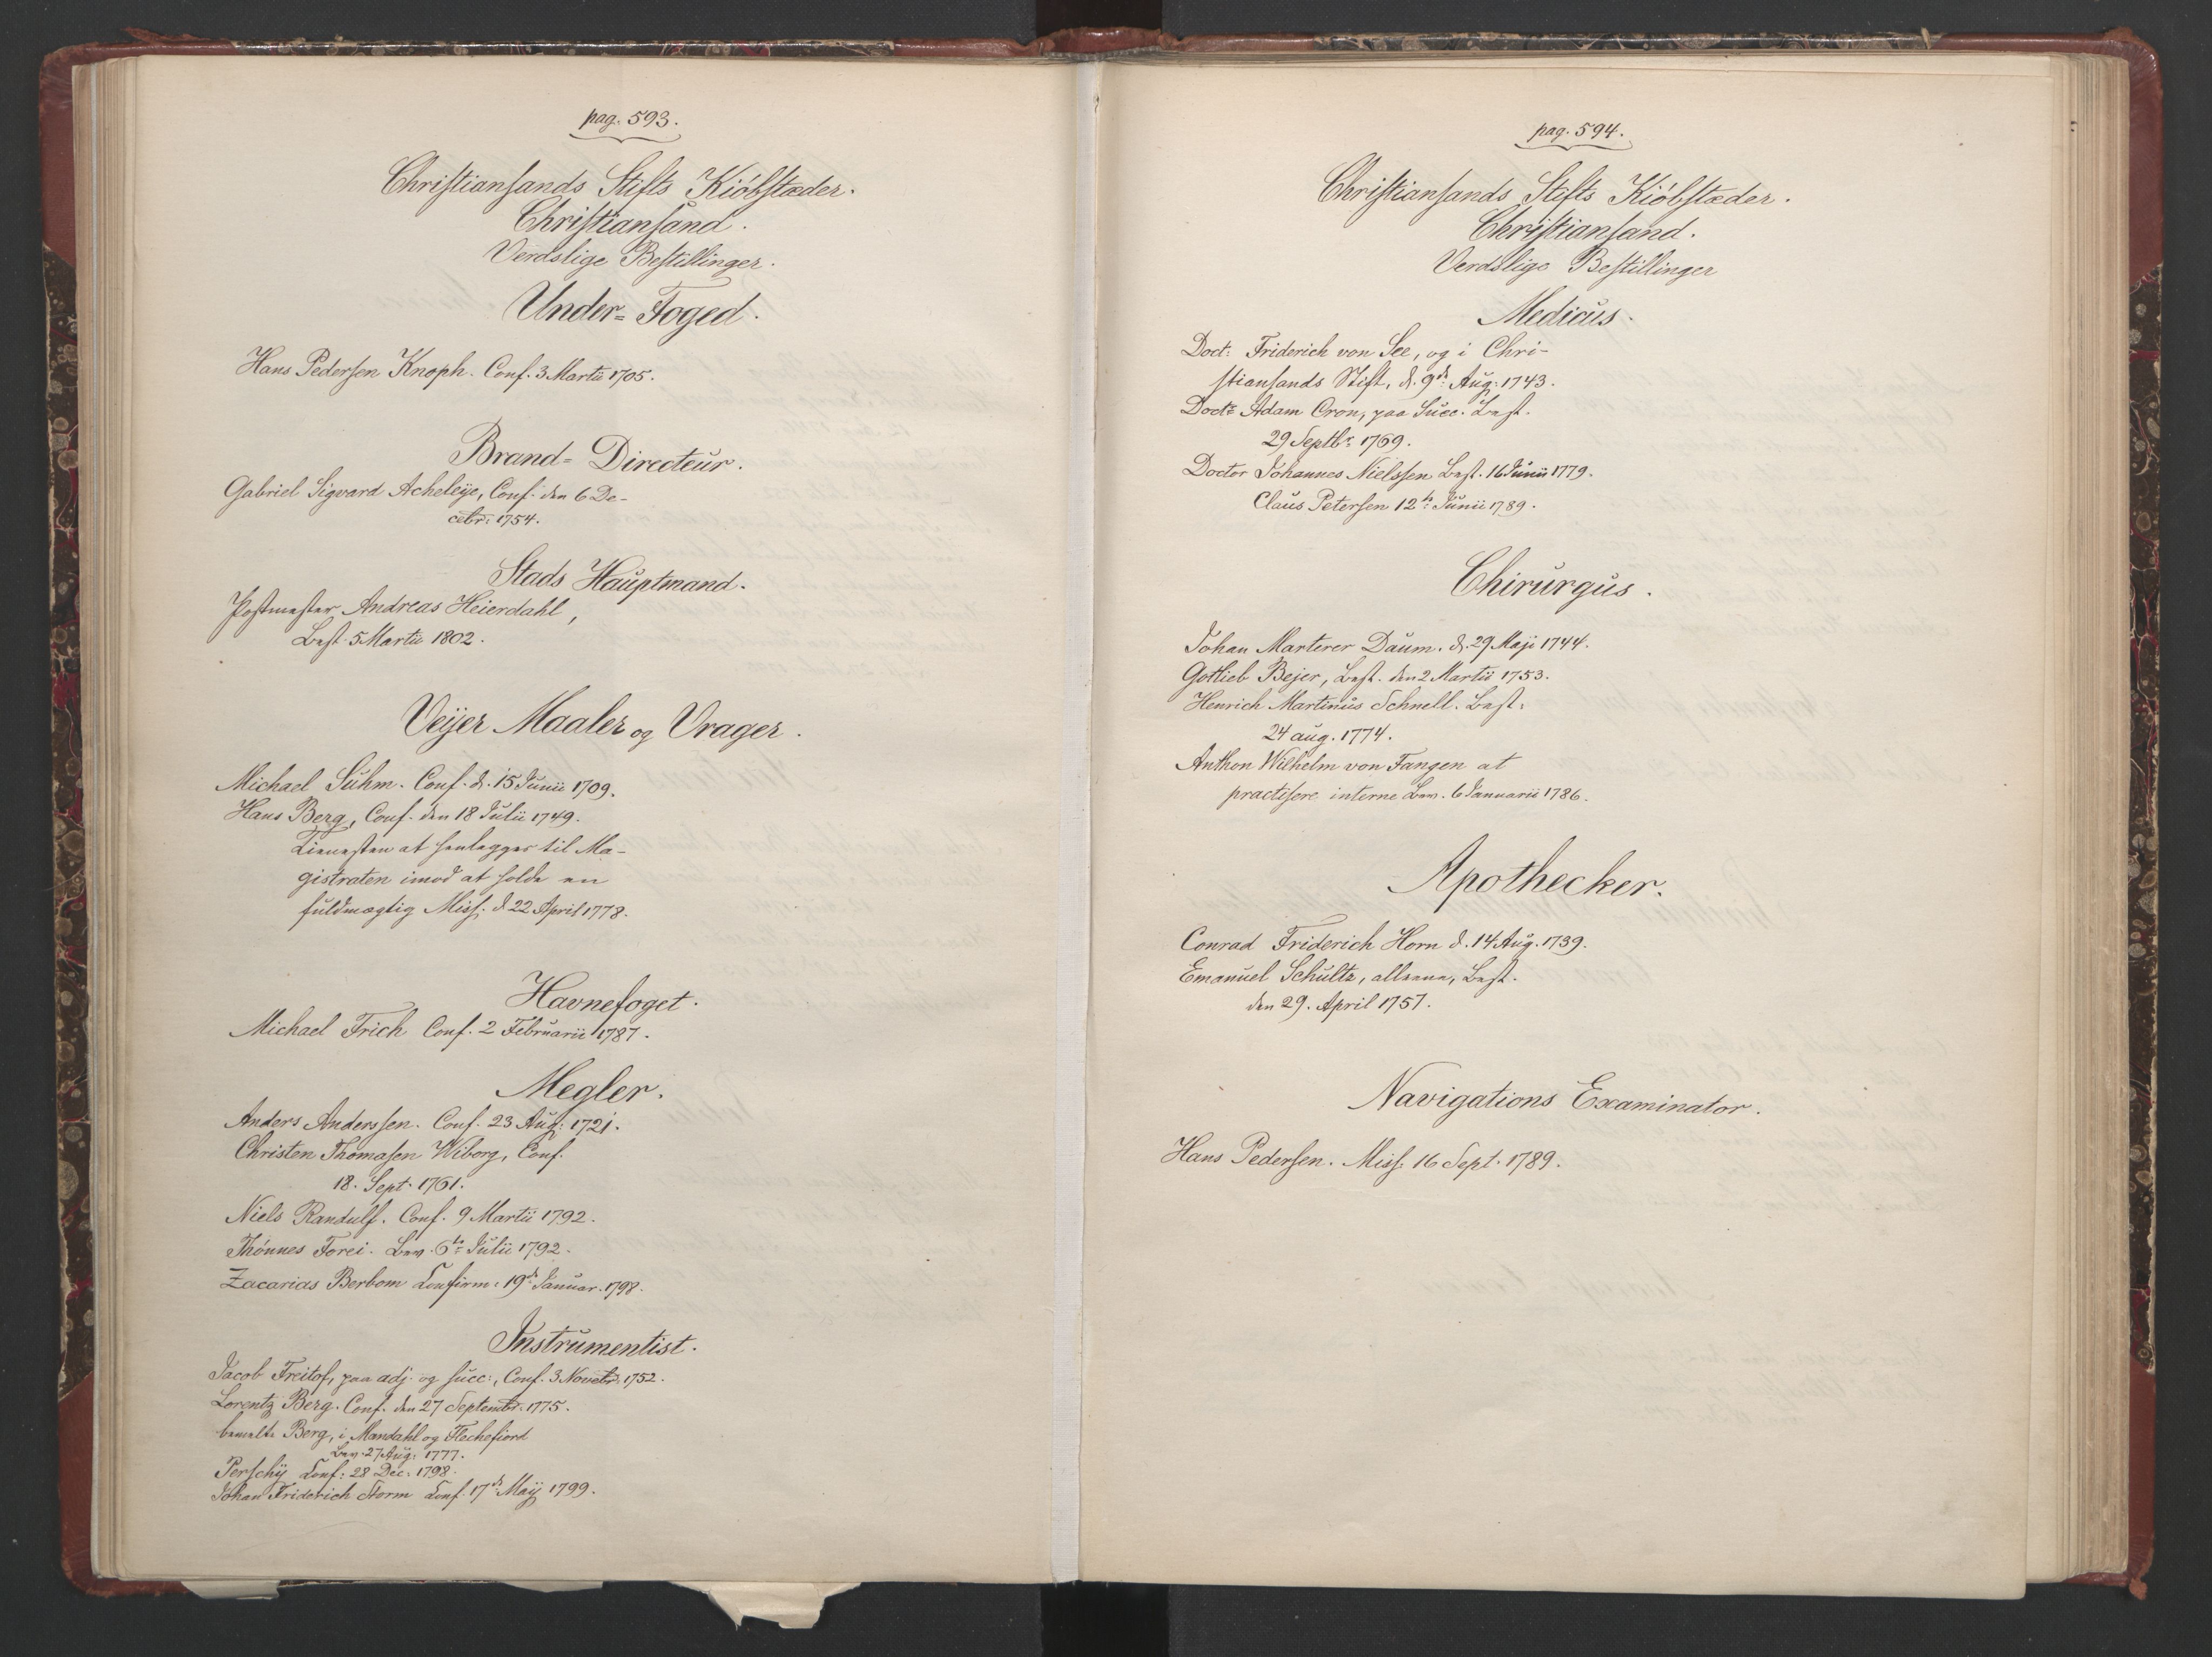 pag. 593.
Christiansands Stifts Kiöbstæder.
Christiansand.
Verdslige Bestillinger.
Under=Foged.
Hans Pedersen Knoph. Conf. 3 Martii 1705.
Brand=Directeur.
Gabriel Sigvard Acheleÿe, Conf. den 6 De-
cebr: 1754.
Stads Hauptmand.
Postmester Andreas Heierdahl,
Best. 5 Martii 1802.
Veÿer Maaler og Vrager.
Michael Suhm. Conf. d. 15 Junii 1709.
Hans Berg, Conf. den 18 Julii 1749.
Tienesten at henlegges til Ma-
gistraten imod at holde en
fuldmægtig Miss. d 22 April 1778.
Havnefoget.
Michael Frich Conf. 2 Februarii 1787.
Megler.
Anders Anderssen. Conf. 23 Aug: 1721.
Christen Thomasen Wiborg, Conf.
18. Sept. 1761.
Niels Randulf. Conf. 9 Martii 1792.
Thönnes Forei. Bev. 6te Julii 1792.
Zacarias Berbom Confirm: 19de Januar. 1798.
Instrumentist.
Jacob Freitof, paa adj. og succ:, Conf. 3 Novebr. 1752.
Lorentz Berg. Conf. den 27 Septembr. 1775.
bemelte Berg, i Mandahl og Flechefiord
Bev. 27 Aug: 1777.
Perschÿ Conf: 28 Dec: 1798.
Johan Friderich Storm Conf. 17de Maÿ 1799.
pag. 594.
Christiansands Stifts Kiöbstæder.
Christiansand.
Verdslige Bestillinger
Medicus.
Doct: Friderich von See, og i Chri-
stiansands Stift, d. 9de Aug: 1743.
Doct: Adam Cron, paa Succ. Best.
29 Septbr. 1769.
Doctor Johannes Nielssen Best. 16 Junii 1779.
Claus Petersen 12te Junii 1789.
Chirurgus.
Johan Marterer Daum. d. 29 Maji 1744.
Gotlieb Bejer, Best. den 2 Martii 1753.
Henrich Martinus Schnell. Best:
24 aug. 1774.
Anthon Wilhelm von Fangen at
practisere interne Bev. 6 Januarii 1786.
Apothecker.
Conrad Friderich Horn d. 14 Aug. 1739.
Emanuel Schultz, allene, Best.
den 29. April 1757.
Navigations Examinator.
Hans Pedersen. Miss. 16 Sept. 1789.